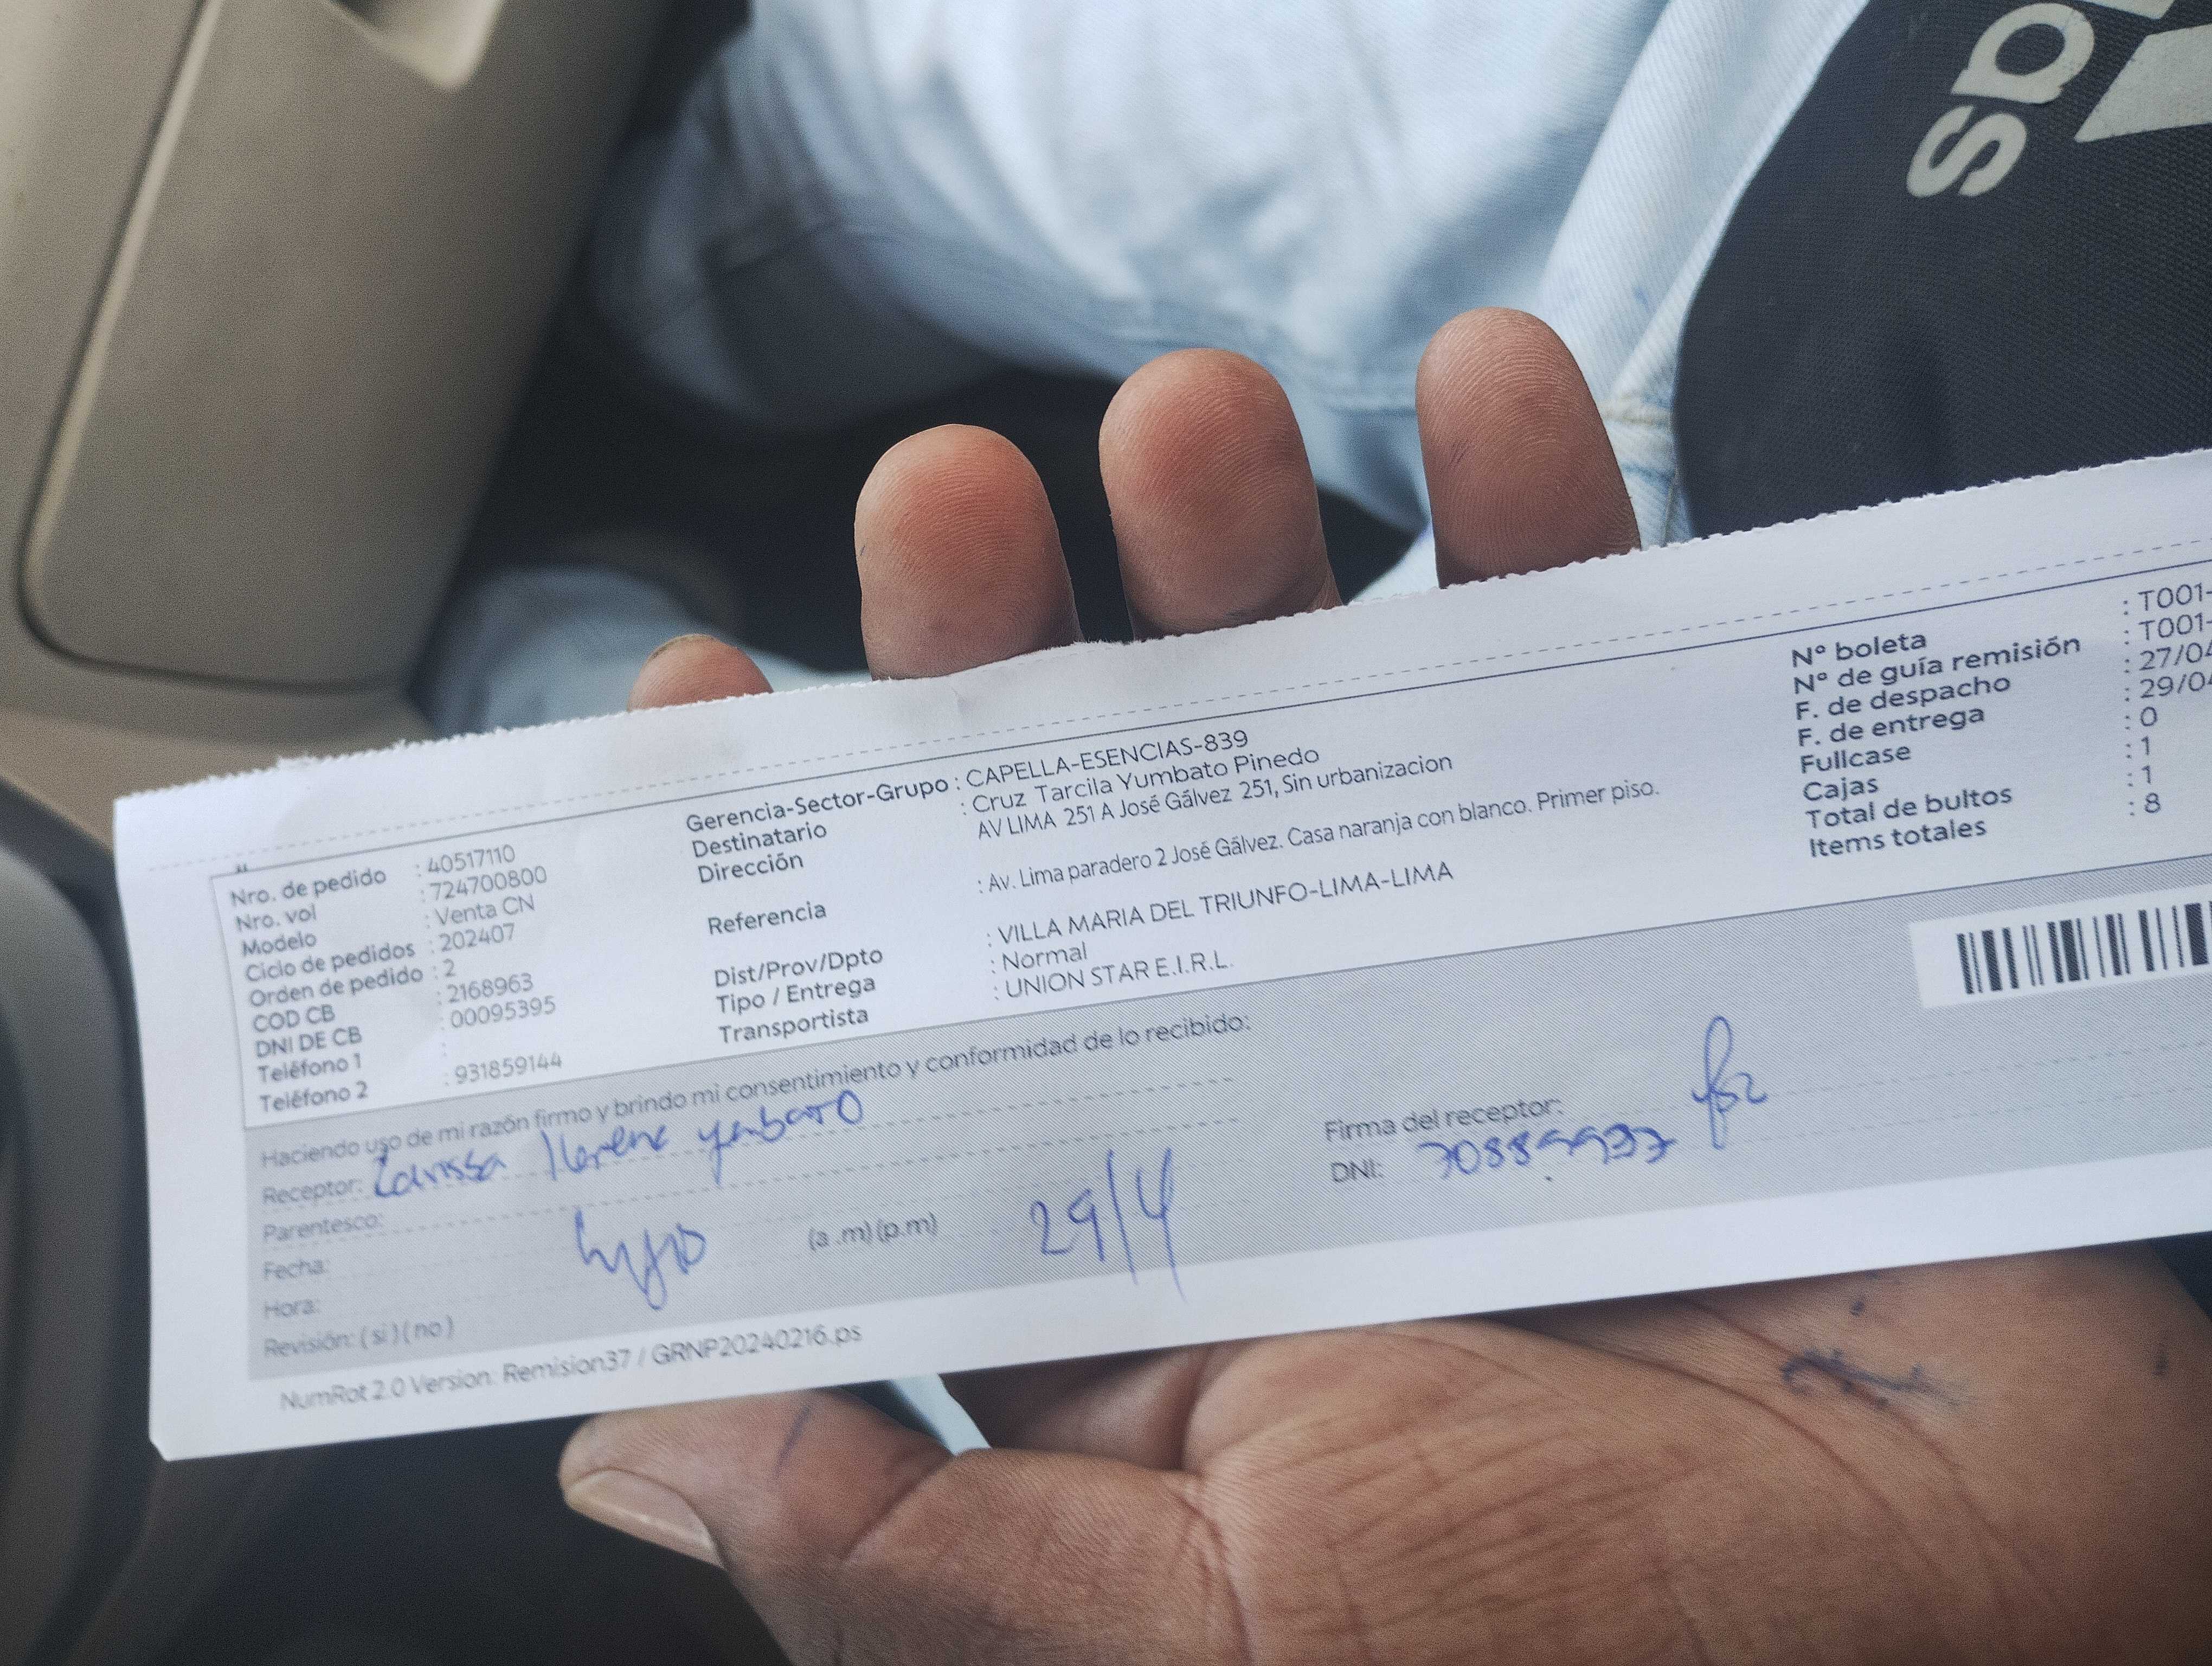 Nro. de pedido : 40517110
Nro. vol : 724700800
Modelo : Venta CN
Ciclo de pedidos : 202407
Orden de pedido : 2
COD CB : 2168963
DNI DE CB : 00095395
Teléfono 1 :
Teléfono 2 : 931859144
Gerencia-Sector-Grupo : CAPELLA-ESENCIAS-839
Destinatario : Cruz Tarcila Yumbato Pinedo
Dirección AV LIMA 251 A José Gálvez 251, Sin urbanizacion
Referencia : Av. Lima paradero 2 José Gálvez. Casa naranja con blanco. Primer piso.
Dist/Prov/Dpto : VILLA MARIA DEL TRIUNFO-LIMA-LIMA
Tipo / Entrega : Normal
Transportista : UNION STAR E.I.R.L.
N° boleta : T001-
N° de guía remisión : T001-
F. de despacho : 27/04
F. de entrega : 29/04
Fullcase : 0
Cajas : 1
Total de bultos : 1
Items totales : 8
Haciendo uso de mi razón firmo y brindo mi consentimiento y conformidad de lo recibido:
Receptor: Larissa
Parentesco:
Fecha:
(a .m) (p.m) 29/4
Hora:
Revisión: ( si ) ( no )
Firma del receptor:
DNI:
NumRot 2.0 Version: Remision37 / GRNP20240216.ps